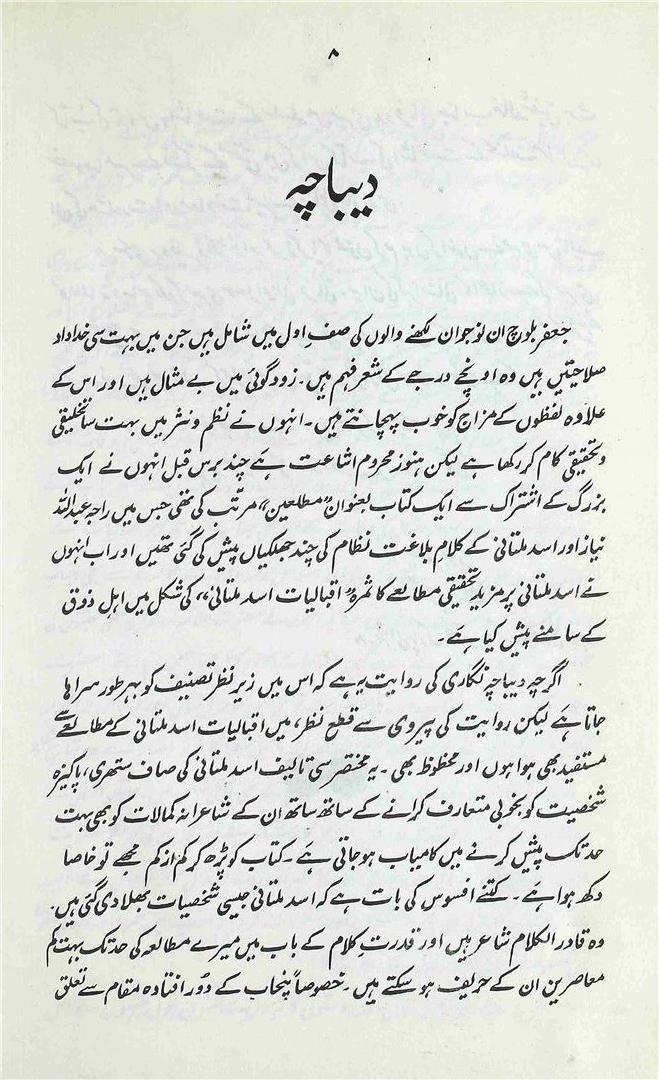 ۸
دیباچہ
جعفر بلوچ ان نوجوان لکھنے والوں کی صفِ اول میں شامل ہیں جن میں بہت سی خداداد
صلاحیتیں ہیں وہ اونچے درجے کے شعر فہم ہیں۔ زود گوئی میں بے مثال ہیں اور اس کے
علاوہ لفظوں کے مزاج کو خوب پہچانتے ہیں۔ انہوں نے نظم و نثر میں بہت سا تخلیقی
و تحقیقی کام کر رکھا ہے لیکن ہنوز محروم اشاعت ہے چند برس قبل انہوں نے ایک
بزرگ کے اشتراک سے ایک کتاب بعنوان "مطلعین" مرتب کی تھی جس میں راجہ عبداللہ
نیاز اور اسد ملتانی کے کلامِ بلاغت نظام کی چند جھلکیاں پیش کی گئی تھیں اور اب انہوں
نے اسد ملتانی پر مزید تحقیقی مطالعے کا ثمرہ "اقبالیات اسد ملتانی" کی شکل میں اہلِ ذوق
کے سامنے پیش کیا ہے۔
اگرچہ دیباچہ نگاری کی روایت یہ ہے کہ اس میں زیر نظر تصنیف کو بہر طور سراہا
جاتا ہے لیکن روایت کی پیروی سے قطع نظر، میں اقبالیات اسد ملتانی کے مطالعے سے
مستفید بھی ہوا ہوں اور محظوظ بھی۔ یہ مختصر سی تالیف اسد ملتانی کی صاف ستھری، پاکیزہ
شخصیت کو بخوبی متعارف کرانے کے ساتھ ساتھ ان کے شاعرانہ کمالات کو بھی بہت
حد تک پیش کرنے میں کامیاب ہو جاتی ہے۔ کتاب کو پڑھ کر کم از کم مجھے تو خاصا
دکھ ہوا ہے۔ کتنے افسوس کی بات ہے کہ اسد ملتانی جیسی شخصیات بھلا دی گئی ہیں۔
وہ قادر الکلام شاعر ہیں اور قدرتِ کلام کے باب میں میرے مطالعہ کی حد تک بہت کم
معاصرین ان کے حریف ہو سکتے ہیں۔ خصوصاً پنجاب کے دُور افتادہ مقام سے تعلق